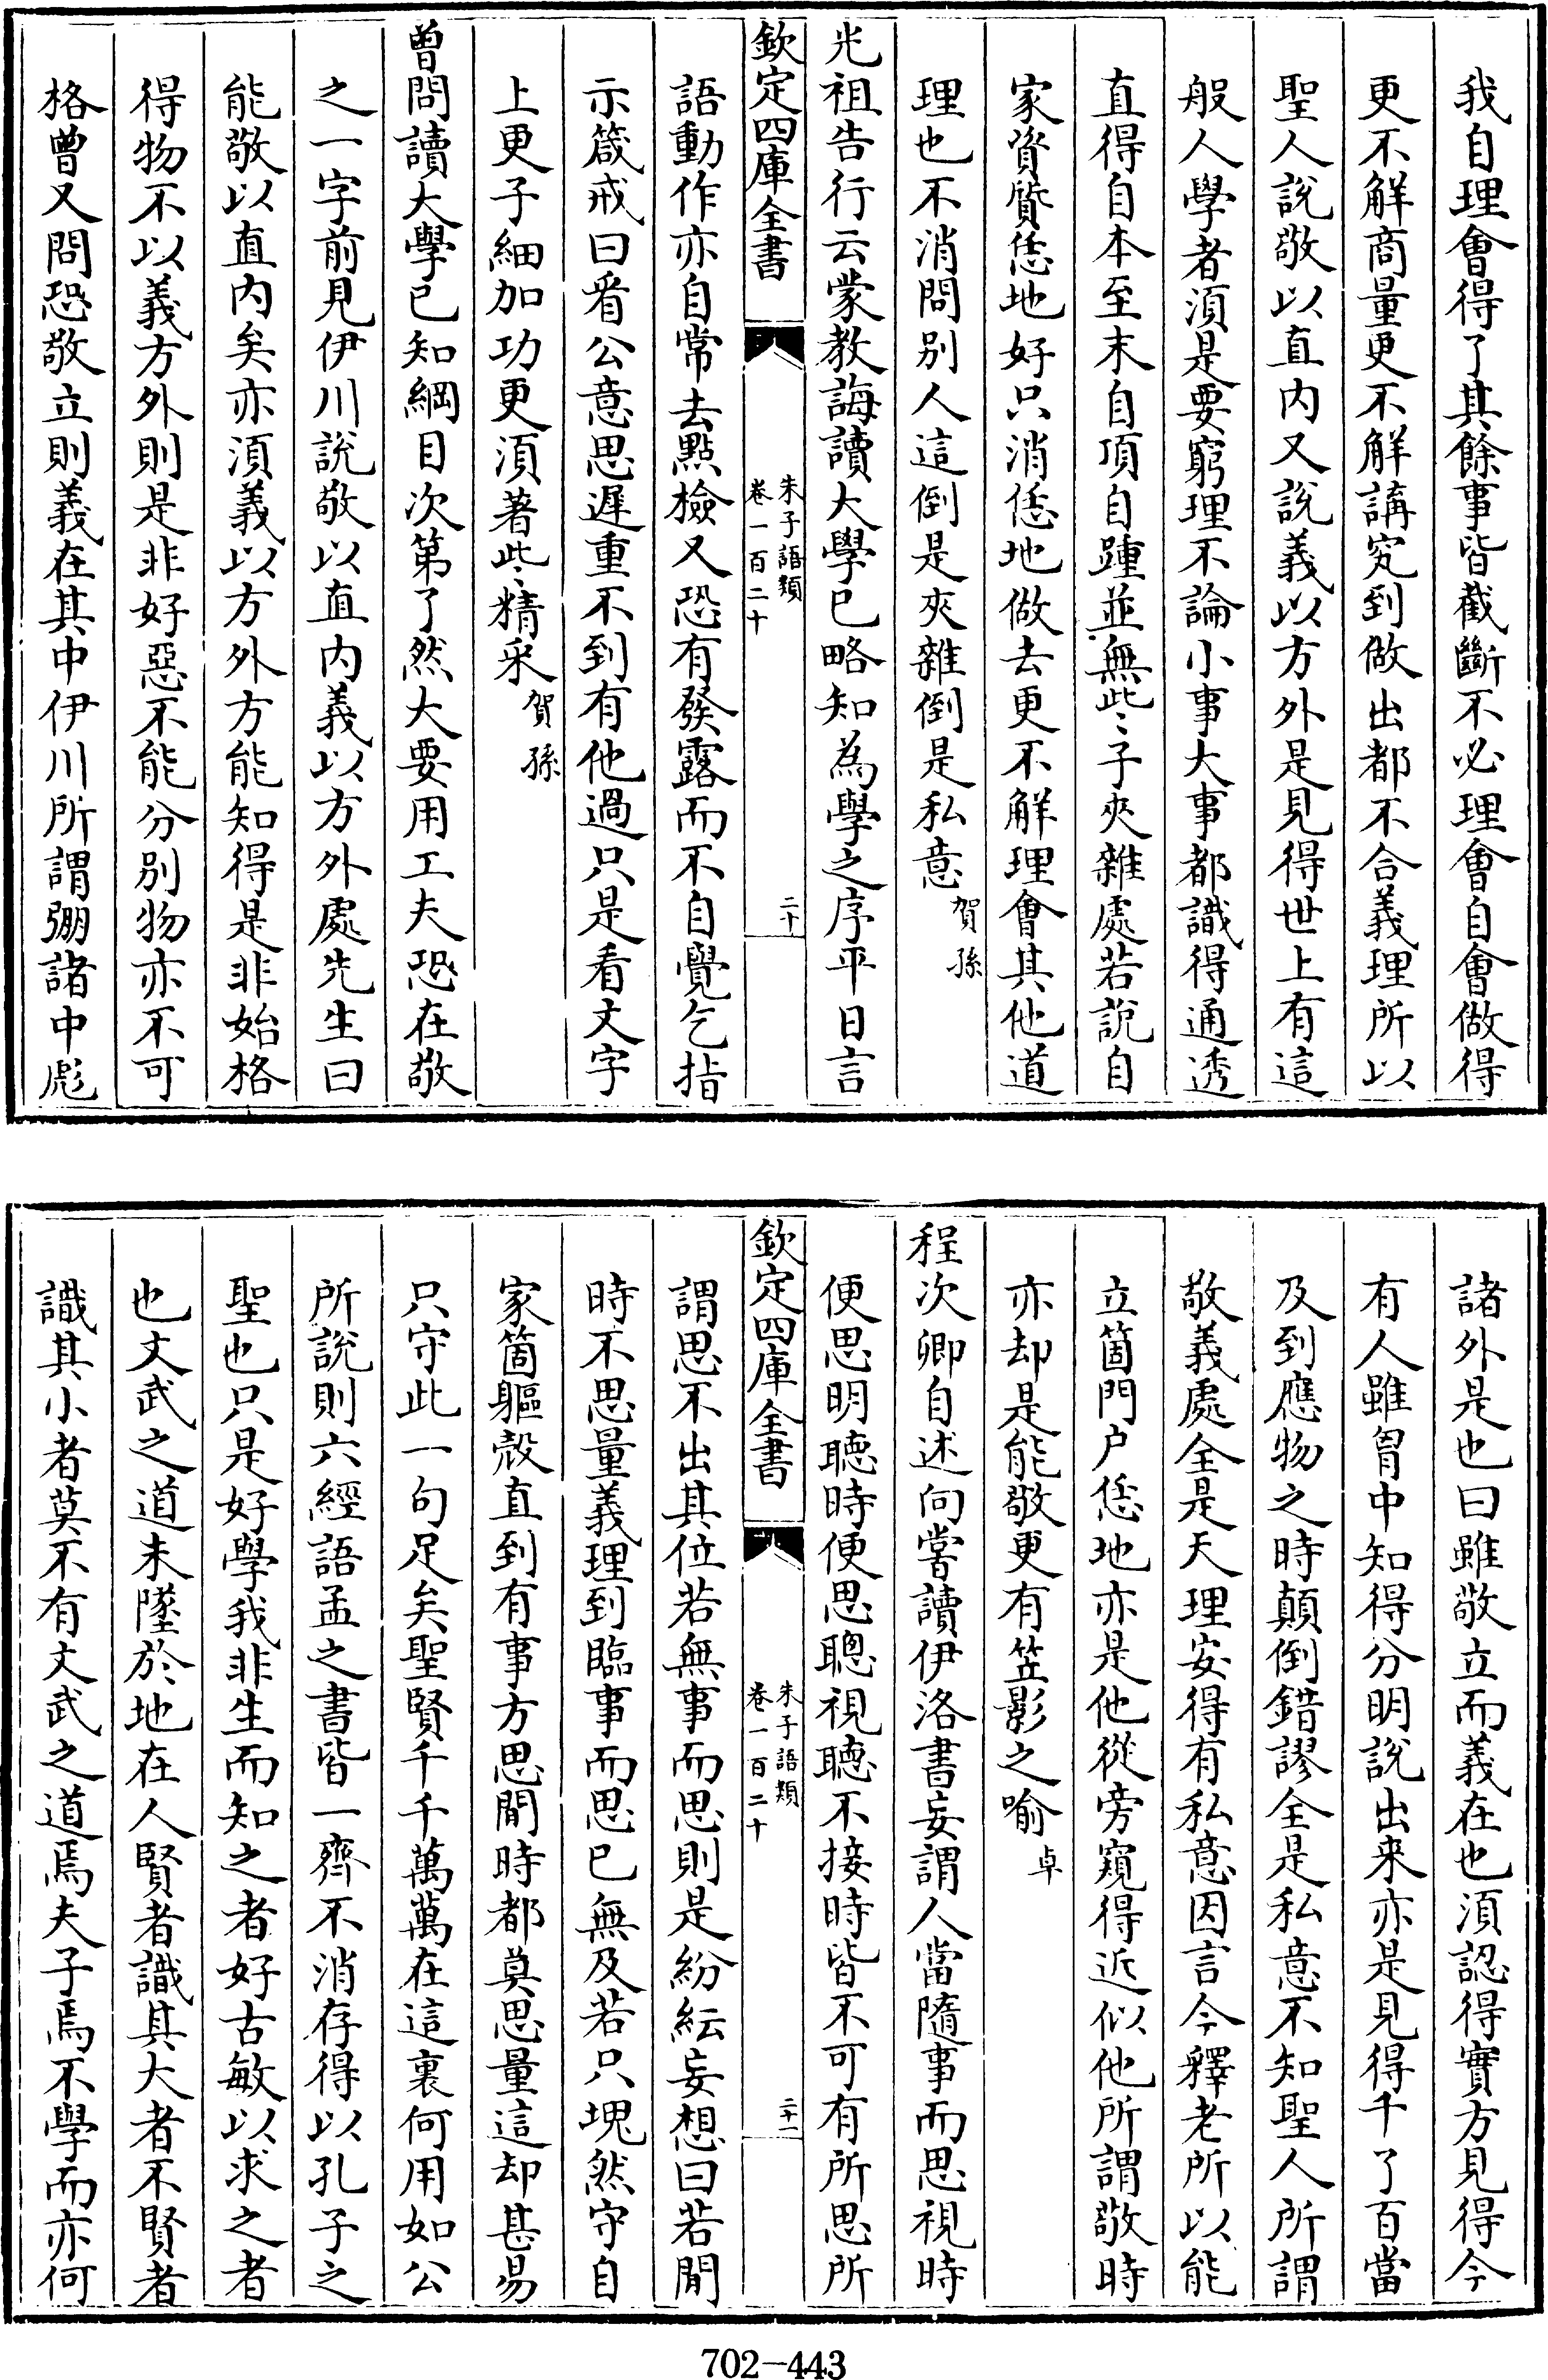 我自理會得了其餘事皆截斷不必理會自會做得
更不解商量更不解講究到做出都不合義理所以
聖人說敬以直内又說義以方外是見得世上有這
般人學者須是要窮理不論小事大事都識得通透
直得自本至末自頂自踵並無些子夾雜處若說自
家資質恁地好只消恁地做去更不解理會其他道
理也不消問別人這倒是夾雜倒是私意賀孫
光祖告行云蒙教誨讀大學已略知為學之序平日言
欽定四庫全書
朱子語類
卷一百二十
二十
語動作亦自常去點檢又恐有發露而不自覺乞指
示箴戒曰看公意思遲重不到有他過只是看文字
上更子細加功更須著些精采賀孫
曾問讀大學已知綱目次第了然大要用工夫恐在敬
之一字前見伊川說敬以直内義以方外處先生曰
能敬以直内矣亦須義以方外方能知得是非始格
得物不以義方外則是非好惡不能分別物亦不可
格曾又問恐敬立則義在其中伊川所謂弸諸中彪
諸外是也曰雖敬立而義在也須認得實方見得今
有人雖胷中知得分明說出来亦是見得千了百當
及到應物之時顛倒錯謬全是私意不知聖人所謂
敬義處全是天理安得有私意因言今釋老所以能
立箇門户恁地亦是他從旁窺得近似他所謂敬時
亦却是能敬更有笠影之喻卓
程次卿自述向嘗讀伊洛書妄謂人當隨事而思視時
便思明聽時便思聰視聽不接時皆不可有所思所
欽定四庫全書
朱子語類
卷一百二十
二十一
謂思不出其位若無事而思則是紛紜妄想曰若閒
時不思量義理到臨事而思已無及若只塊然守自
家箇軀殻直到有事方思閒時都莫思量這却甚易
只守此一句足矣聖賢千千萬萬在這裏何用如公
所說則六經語孟之書皆一齊不消存得以孔子之
聖也只是好學我非生而知之者好古敏以求之者
也文武之道未墜於地在人賢者識其大者不賢者
識其小者莫不有文武之道焉夫子焉不學而亦何
702-443